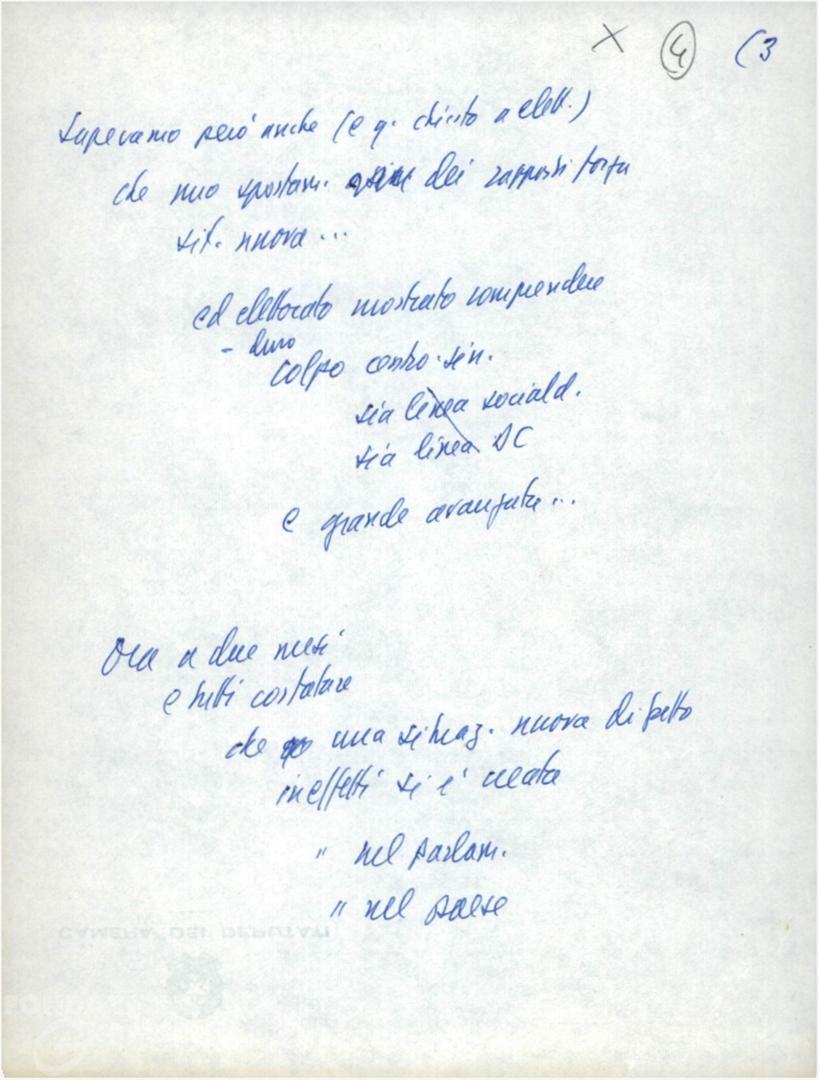 X (4) (3
Sapevamo però anche (e q. chiesto a elett.)
che uno spostam. dei rapporti forza
sit. nuova...
ed elettorato mostrato comprendere
- duro
colpo centro-sin.
sia linea sociald.
sia linea DC
e grande avanzata...
Ora a due mesi
e tutti constatare
che una situaz. nuova di fatto
in effetti si è creata
" nel parlam.
" nel paese
CAMERA DEI DEPUTATI